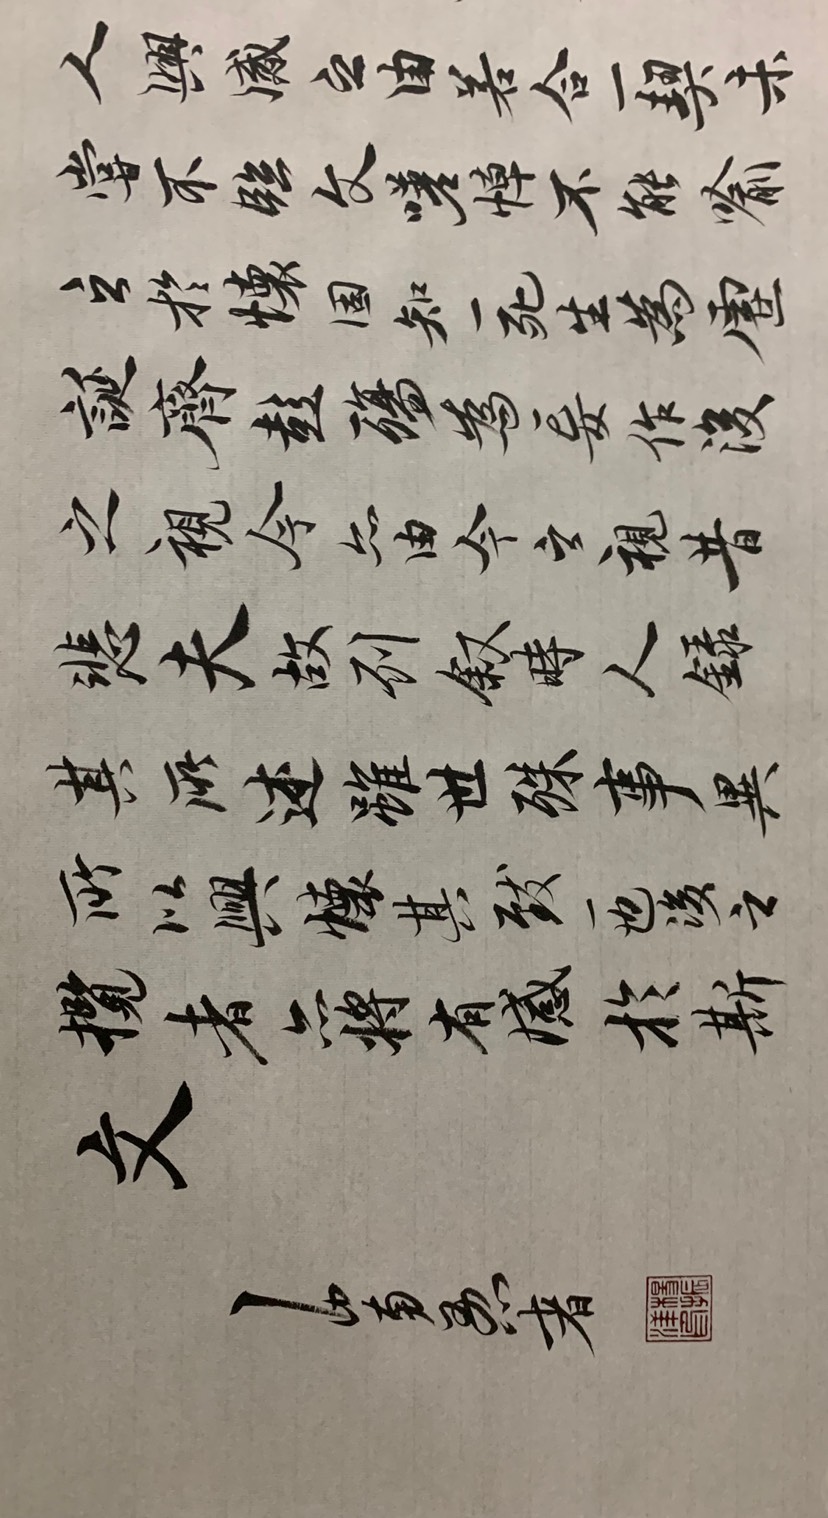 人興感之由若合一契未
嘗不臨文嗟悼不能喻
之於懷固知一死生為虛
誕齊彭殤為妄作後
之視今亦由今之視昔
悲夫故列叙時人錄
其所述雖世殊事異
所以興懷其致一也後之
攬者亦將有感於斯
文
山南愚者